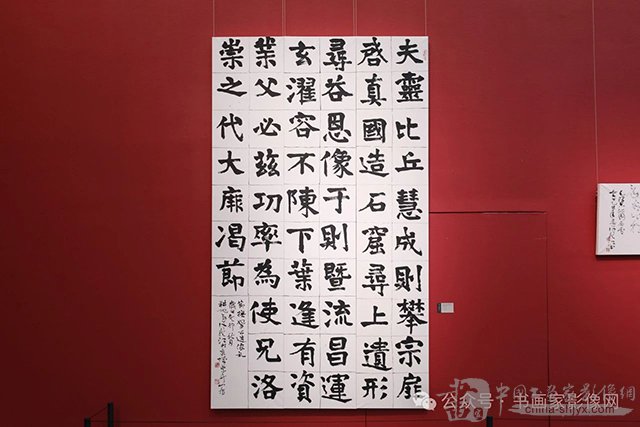 夫靈比丘慧成則攀宗扉
啓真國造石窟尋上遺形
尋荅恩像于則暨流昌運
玄濯容不陳下葉逢有資
業父必兹功率為使兄洛
崇之代大靡渴節
公众号·书画家影像网
中国书画家影像網
china-shjyx.com